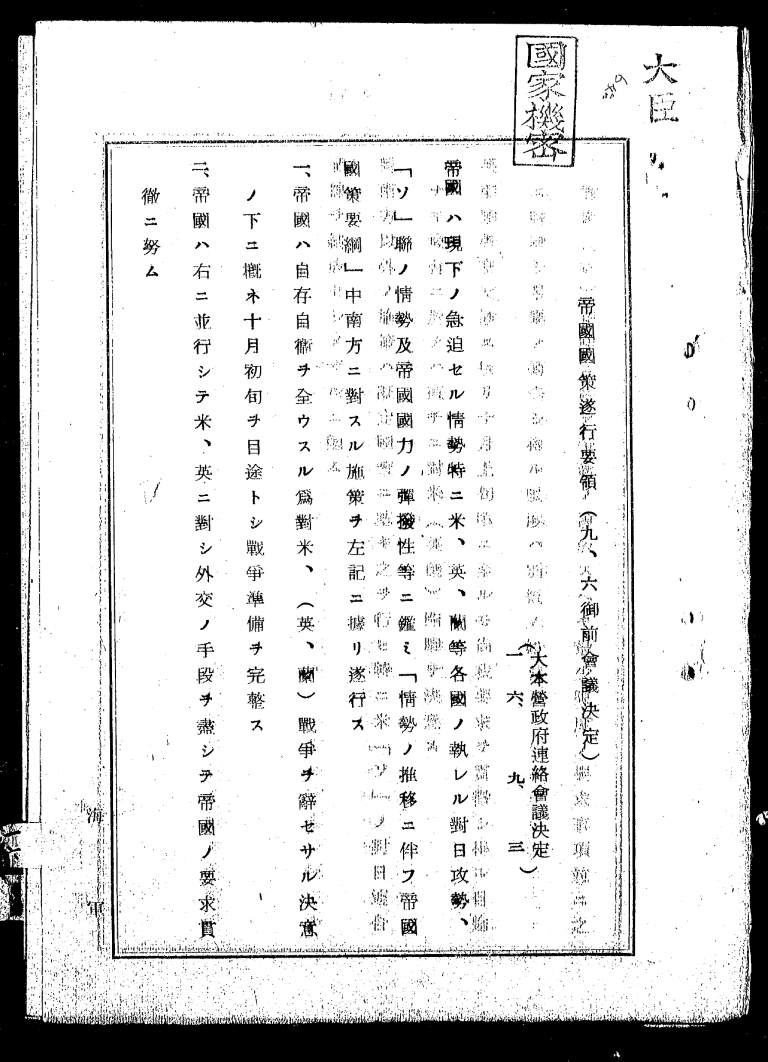 大臣
國家機密
帝國國策遂行要領（九、六御前會議決定）
（大本營政府連絡會議決定
一六、九、三）
帝國ハ現下ノ急迫セル情勢特ニ米、英、蘭等各國ノ執レル對日攻勢、
「ソ」聯ノ情勢及帝國國力ノ彈撥性等ニ鑑ミ「情勢ノ推移ニ伴フ帝國
國策要綱」中南方ニ對スル施策ヲ左記ニ據リ遂行ス
一、帝國ハ自存自衞ヲ全ウスル爲對米、（英、蘭）戰爭ヲ辭セサル決意
ノ下ニ概ネ十月初旬ヲ目途トシ戰爭準備ヲ完整ス
二、帝國ハ右ニ並行シテ米、英ニ對シ外交ノ手段ヲ盡シテ帝國ノ要求貫
徹ニ努ム
海軍